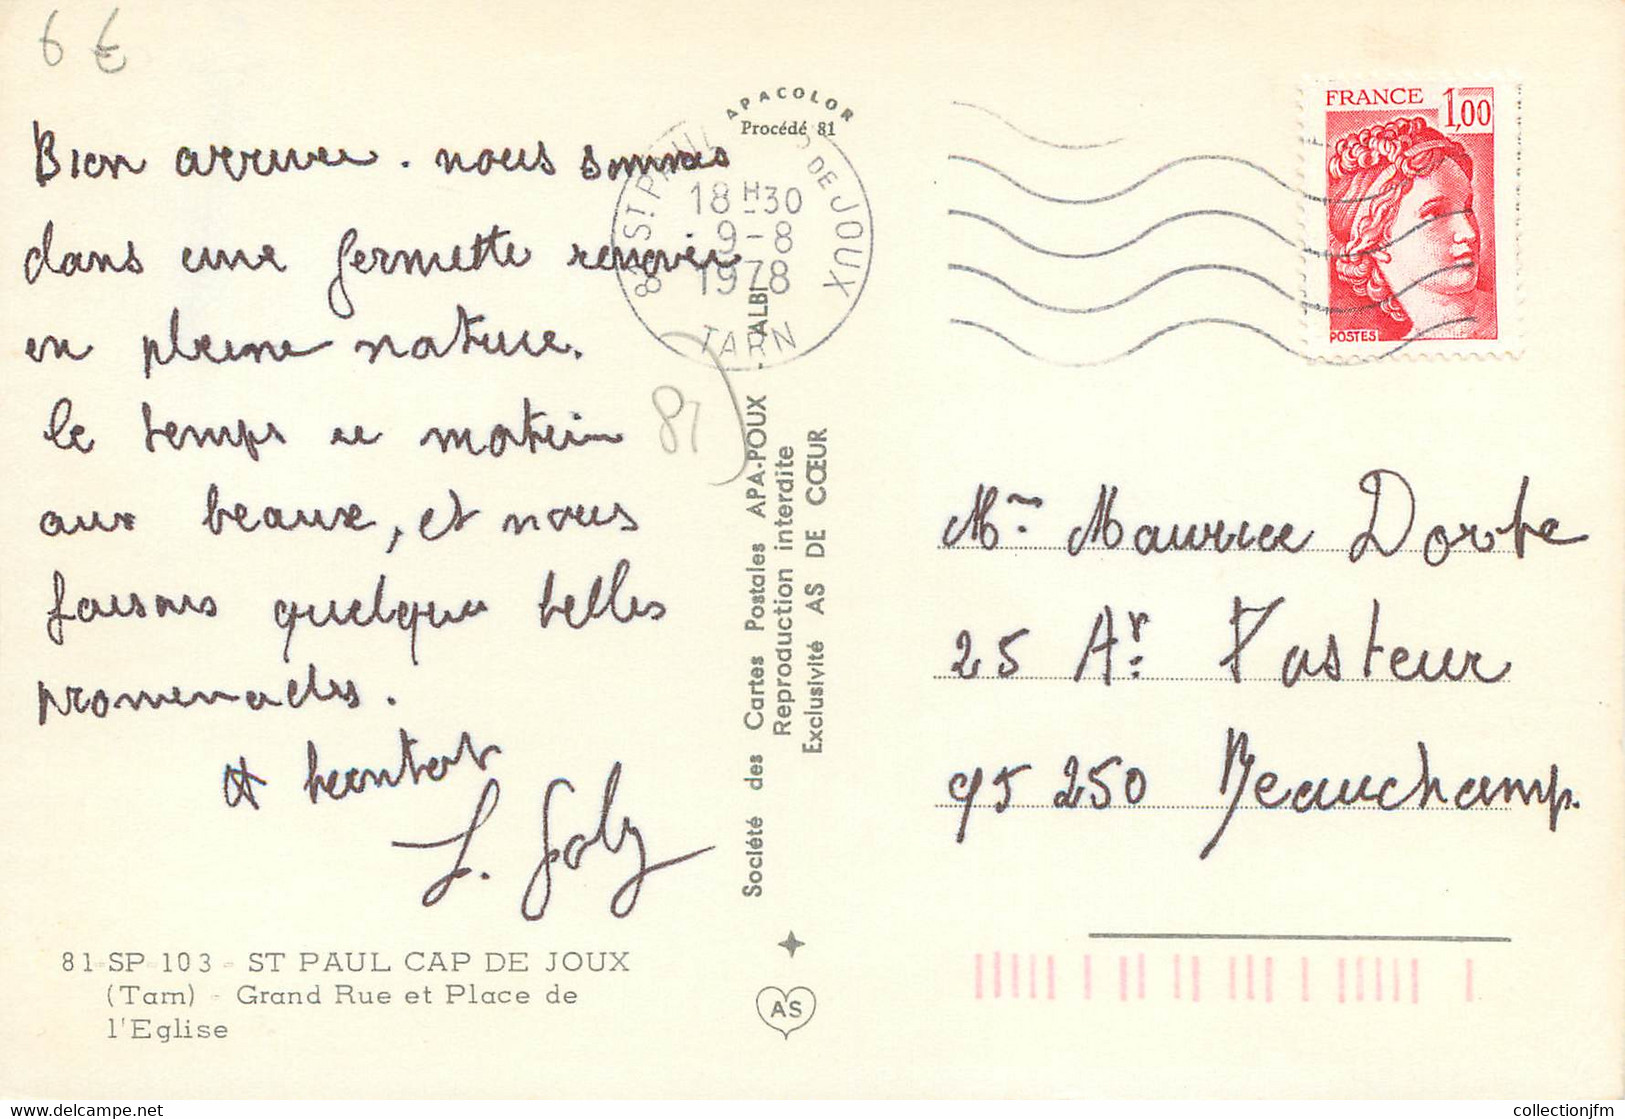 6 €
Bien arrivée. nous sommes
dans une fermette renovée
en pleine nature.
le temps ce matin
aux beaux, et nous
faisons quelques belles
promenades.
A bientot
J. Joly
81-SP-103 - ST PAUL CAP DE JOUX
(Tarn) - Grand Rue et Place de
l'Eglise
APACOLOR
Procédé 81
81 ST PAUL CAP DE JOUX
18 H 30
9-8
1978
TARN
81
Société des Cartes Postales APA-POUX - ALBI
Reproduction interdite
Exclusivité AS DE CŒUR
AS
FRANCE 1,00
POSTES
Mr Maurice Dorbe
25 Av: Pasteur
95 250 Beauchamp.
collectionjfm